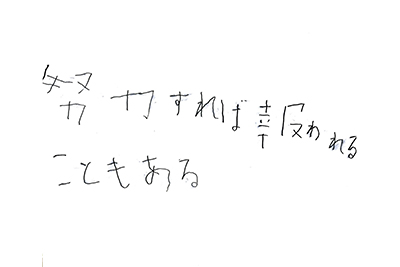 努力すれば報われる
こともある